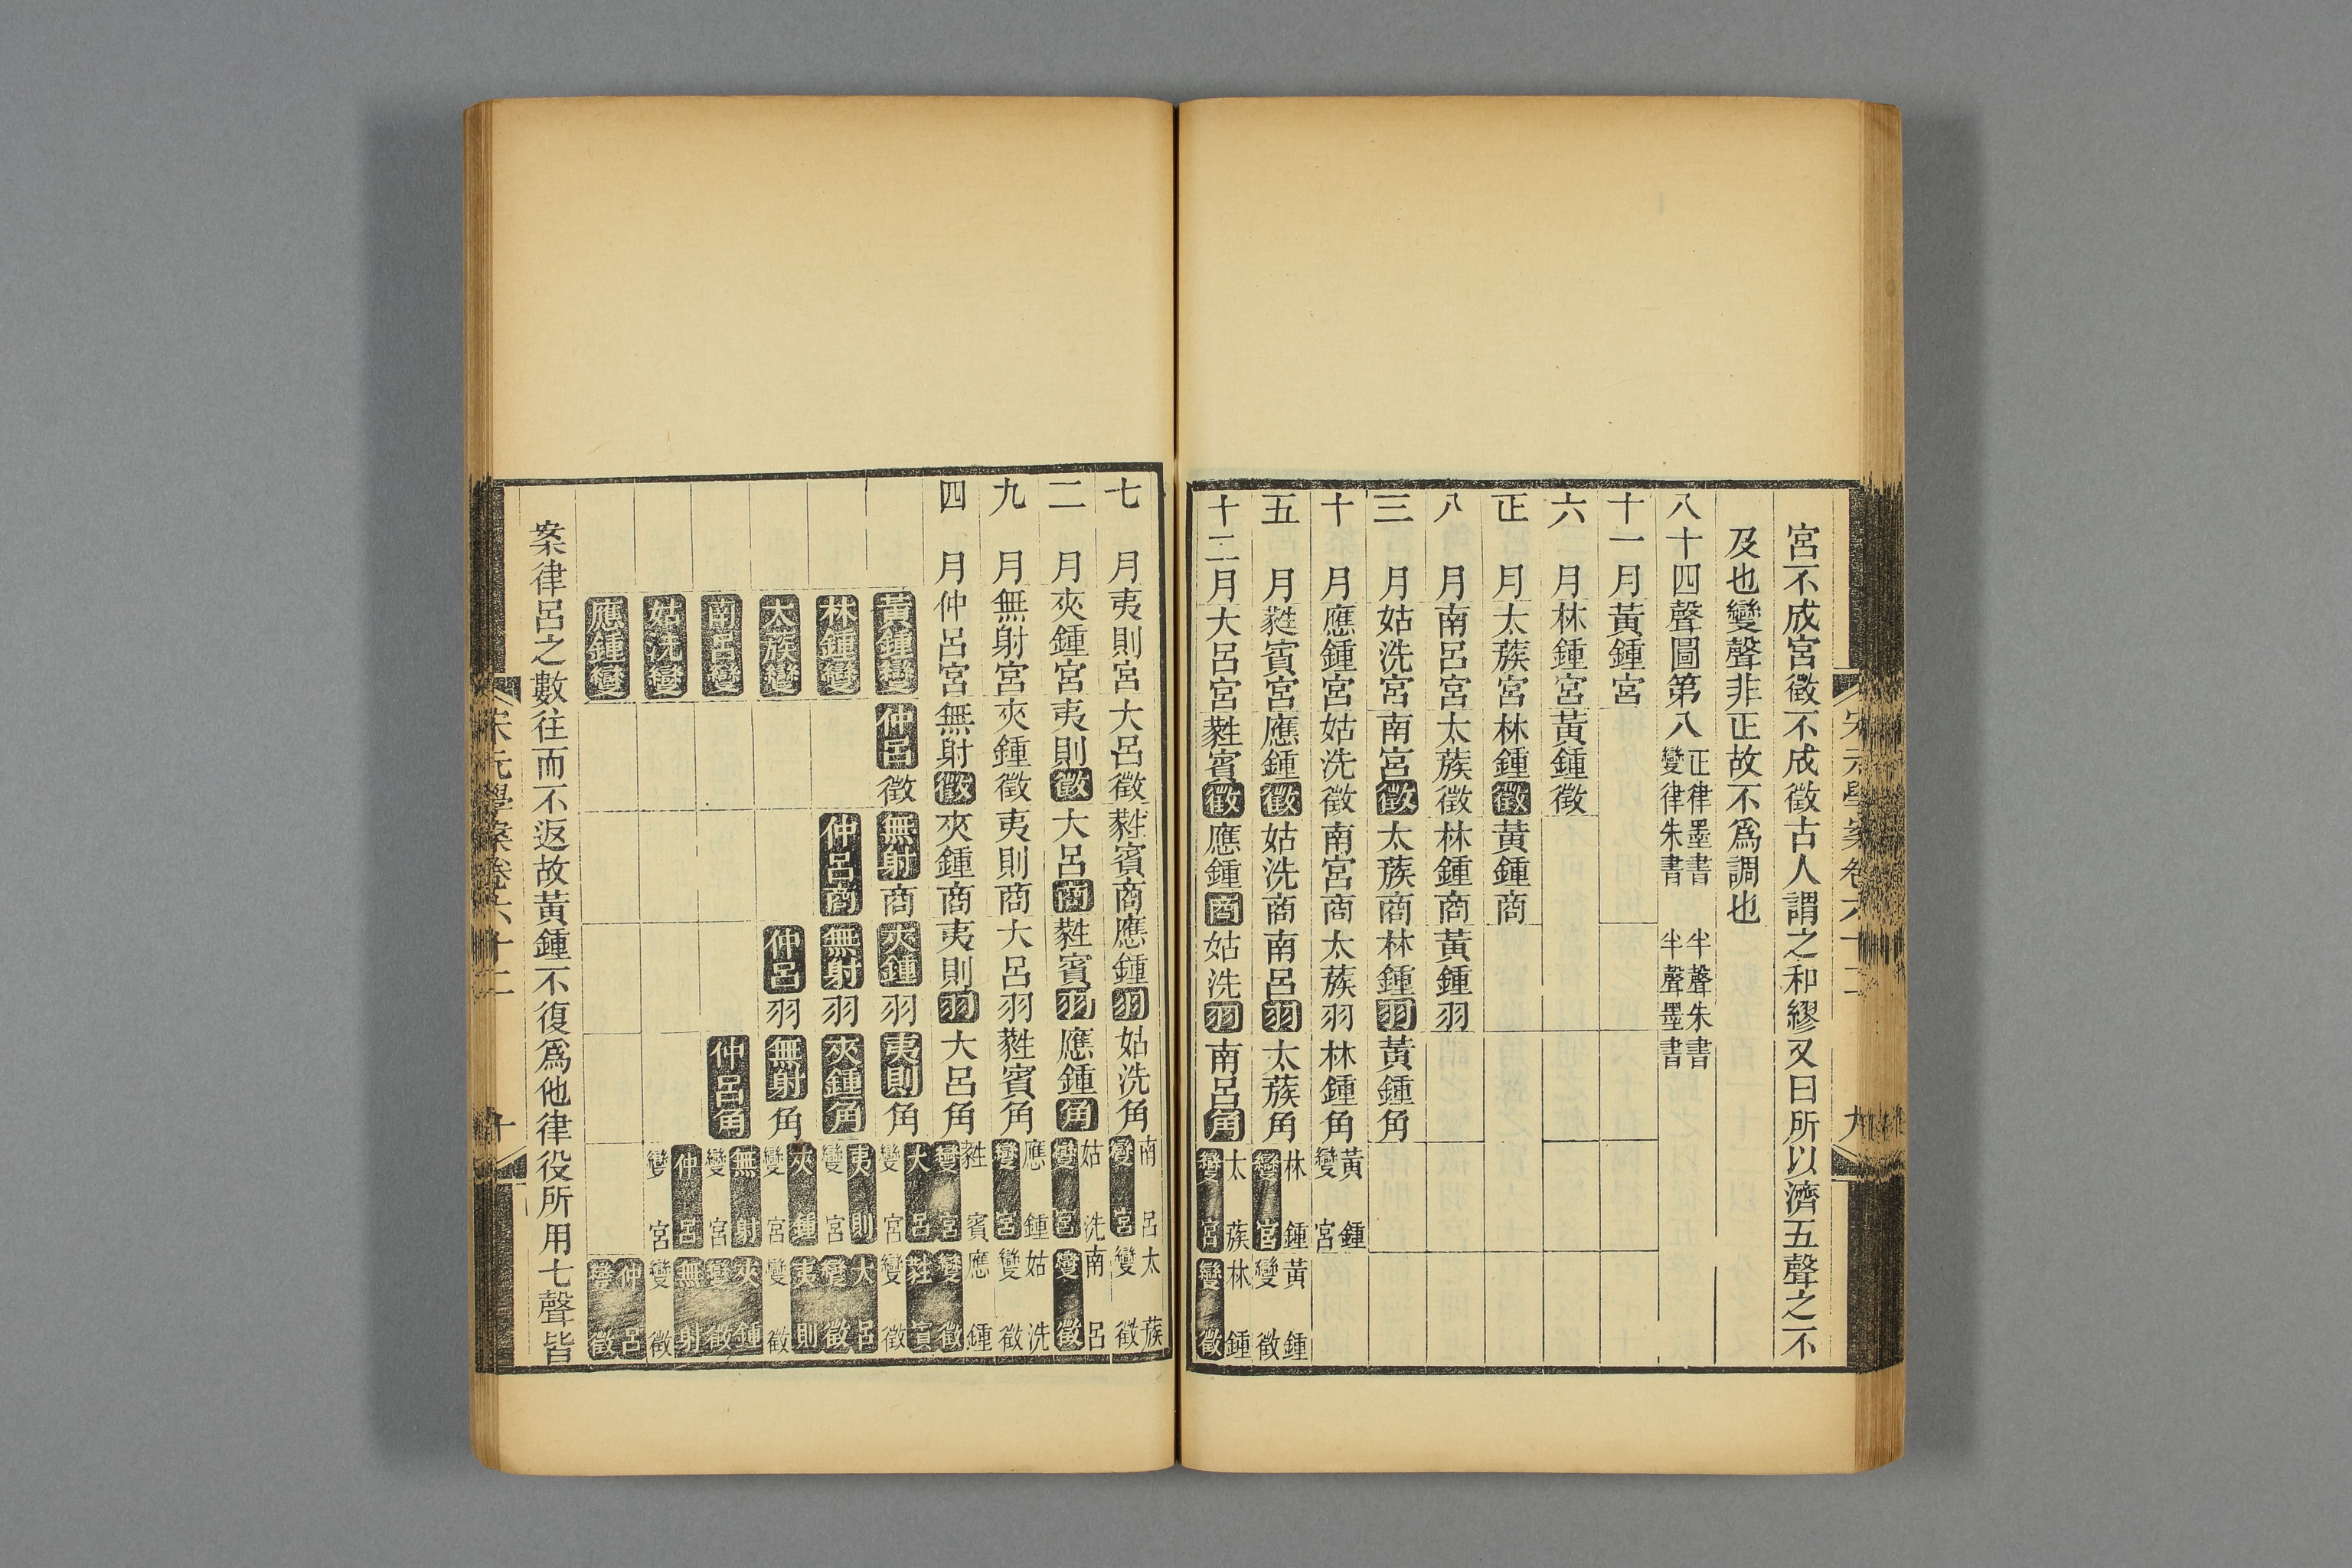 宮不成宮徵不成徵古人謂之和繆又曰所以濟五聲之不
及也變聲非正故不爲調也
八十四聲圖第八 正律墨書 半聲朱書 變律朱書 半聲墨書
十一月黃鍾宮
六 月林鍾宮黃鍾徵
正 月太蔟宮林鍾徵黃鍾商
八 月南呂宮太蔟徵林鍾商黃鍾羽
三 月姑洗宮南宮徵太蔟商林鍾羽黃鍾角
十 月應鍾宮姑洗徵南宮商太蔟羽林鍾角黃鍾變宮
五 月蕤賓宮應鍾徵姑洗商南呂羽太蔟角林鍾變宮黃鍾變徵
十二月大呂宮蕤賓徵應鍾商姑洗羽南呂角太蔟變宮林鍾變徵
宋元學案卷六十二 九
七 月夷則宮大呂徵蕤賓商應鍾羽姑洗角南呂變宮太蔟變徵
二 月夾鍾宮夷則徵大呂商蕤賓羽應鍾角姑洗變宮南呂變徵
九 月無射宮夾鍾徵夷則商大呂羽蕤賓角應鍾變宮姑洗變徵
四 月仲呂宮無射徵夾鍾商夷則羽大呂角蕤賓變宮應鍾變徵
黃鍾變 仲呂徵無射商夾鍾羽夷則角大呂變宮蕤賓變徵
林鍾變 仲呂商無射羽夾鍾角夷則變宮大呂變徵
太蔟變 仲呂羽無射角夾鍾變宮夷則變徵
南呂變 仲呂角無射變宮夾鍾變徵
姑洗變 仲呂變宮無射變徵
應鍾變 仲呂變徵
案律呂之數往而不返故黃鍾不復爲他律役所用七聲皆
宋元學案卷六十二 十